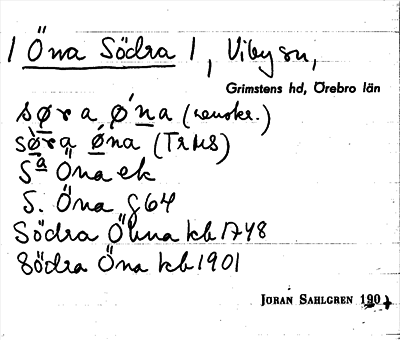 1 Öna Södra 1, Viby sn,
Grimstens hd, Örebro län
søra ø'na (renskr.)
sø̀ra ǿna (TrMS)
Sª Öna ek
S. Öna g64
Södra Öhna kb 1748
Södra Öna kb 1901
JÖRAN SAHLGREN 1901